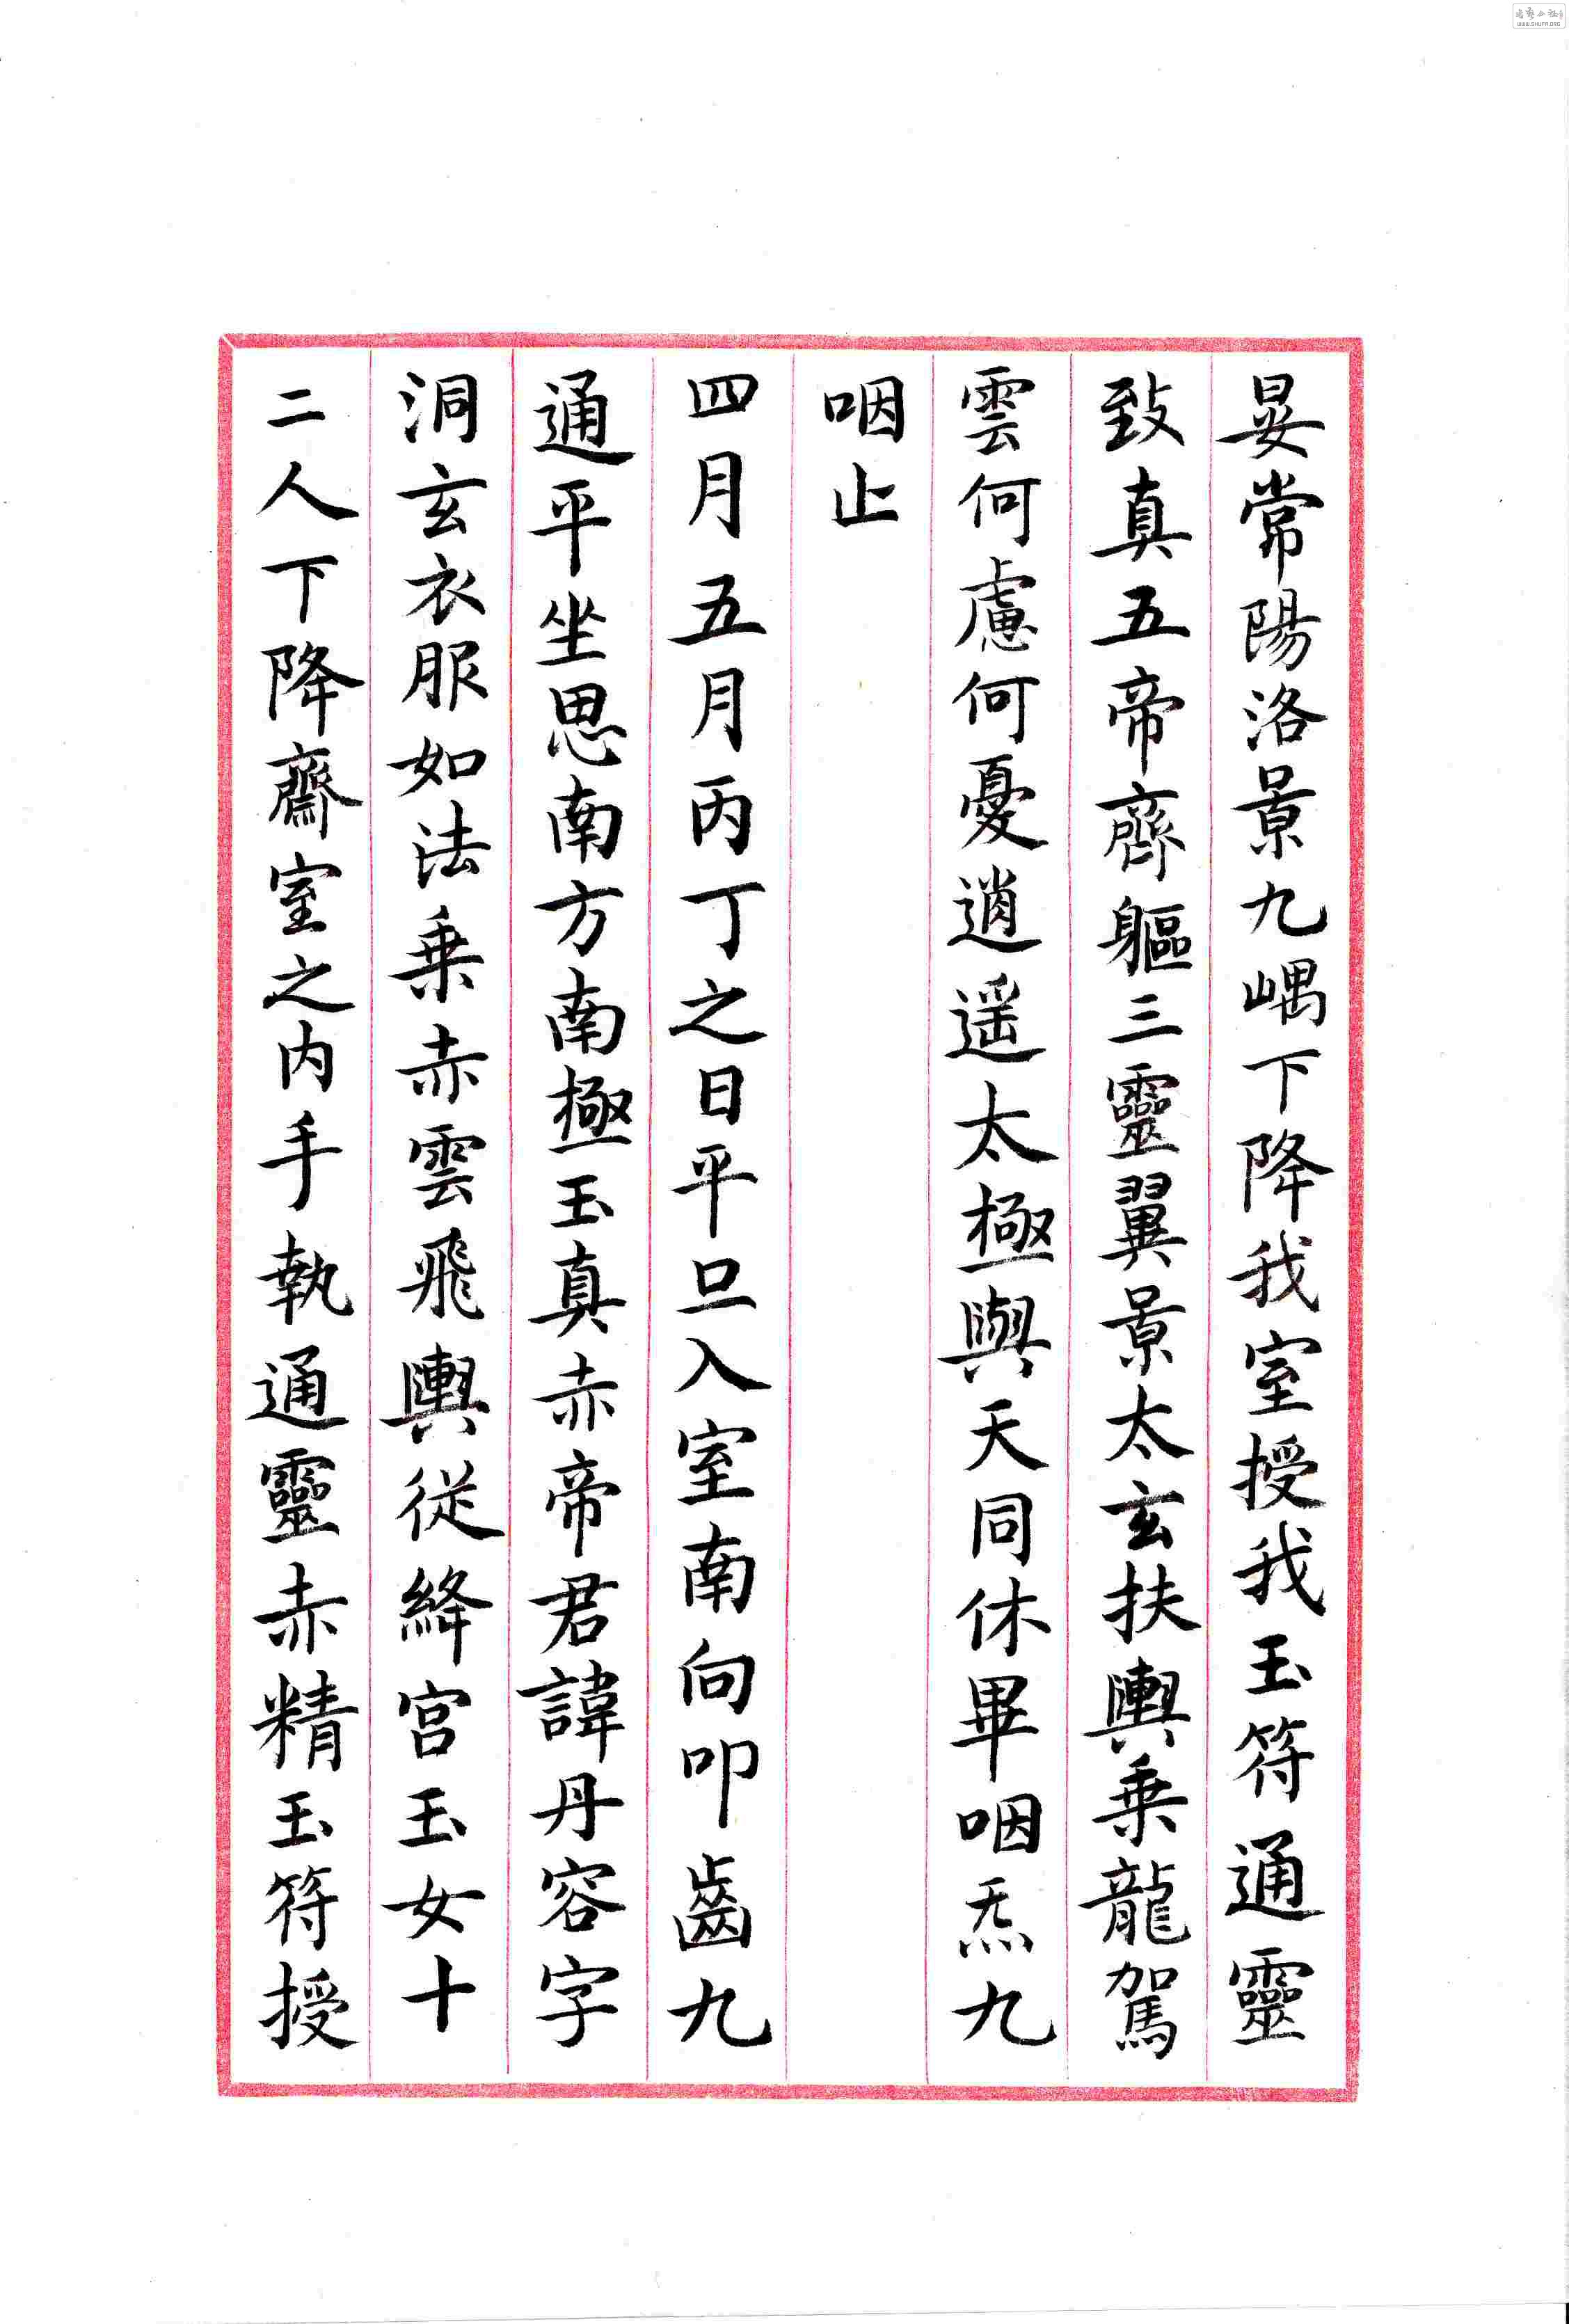 晏常陽洛景九嵎下降我室授我玉符通靈
致真五帝齊軀三靈翼景太玄扶輿乗龍駕
雲何慮何憂逍遥太極與天同休畢咽炁九
咽止
四月五月丙丁之日平旦入室南向叩齒九
通平坐思南方南極玉真赤帝君諱丹容字
洞玄衣服如法乗赤雲飛輿從絳宫玉女十
二人下降齋室之内手執通靈赤精玉符授
WWW.SHUFA.ORG